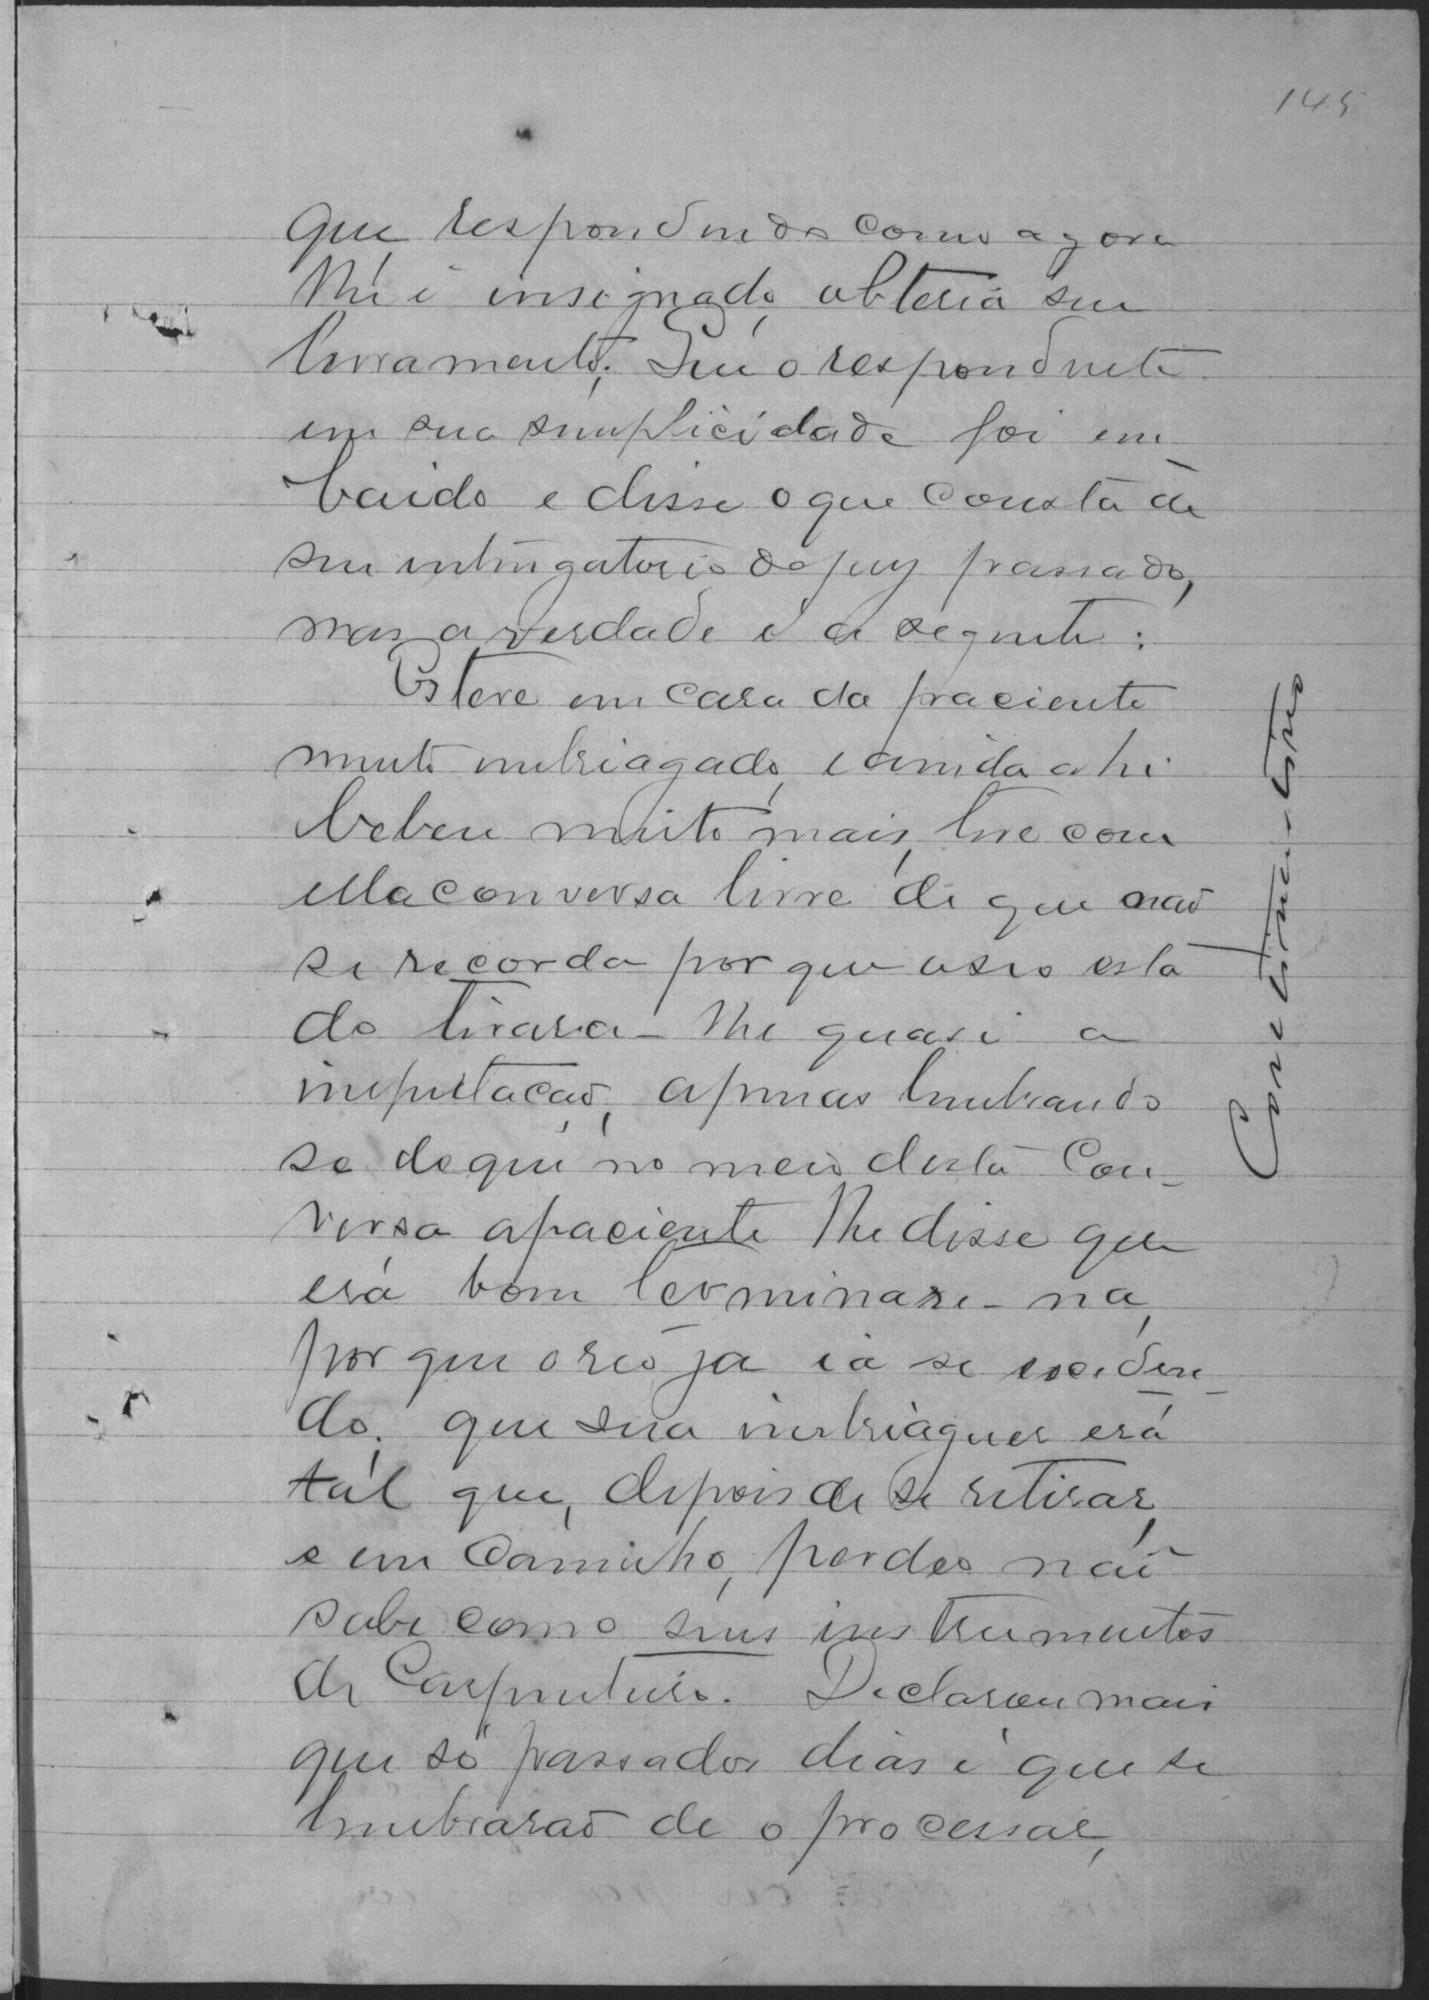 145
que respondendo como agora
lhe é insignado, obteria seu
livramento; Que o respondente
em sua simplicidade foi em
baido e disse o que consta de
seu interrogatorio do jury passado,
mas a verdade é a seguente:
Esteve em casa da paciente
muito imbriagado, e ainda ahi
bebeu muito mais, teve com
ella conversa livre de que não
se recorda por que useo esta
do tirara-lhe quasi a
imputação, apenas lembrando
se de que no meio desta con-
versa a paciente lhe disse que
erá bom terminare-na,
por que o reo já ia se exceden-
do; que sua imbriaguez erá
tál que, depois de se retirar,
e em caminho, perdeo não
sabe como seus instrumentos
de Carpinteiro. Declarou mais
que só passados dias é que se
lembrarão de o processar,